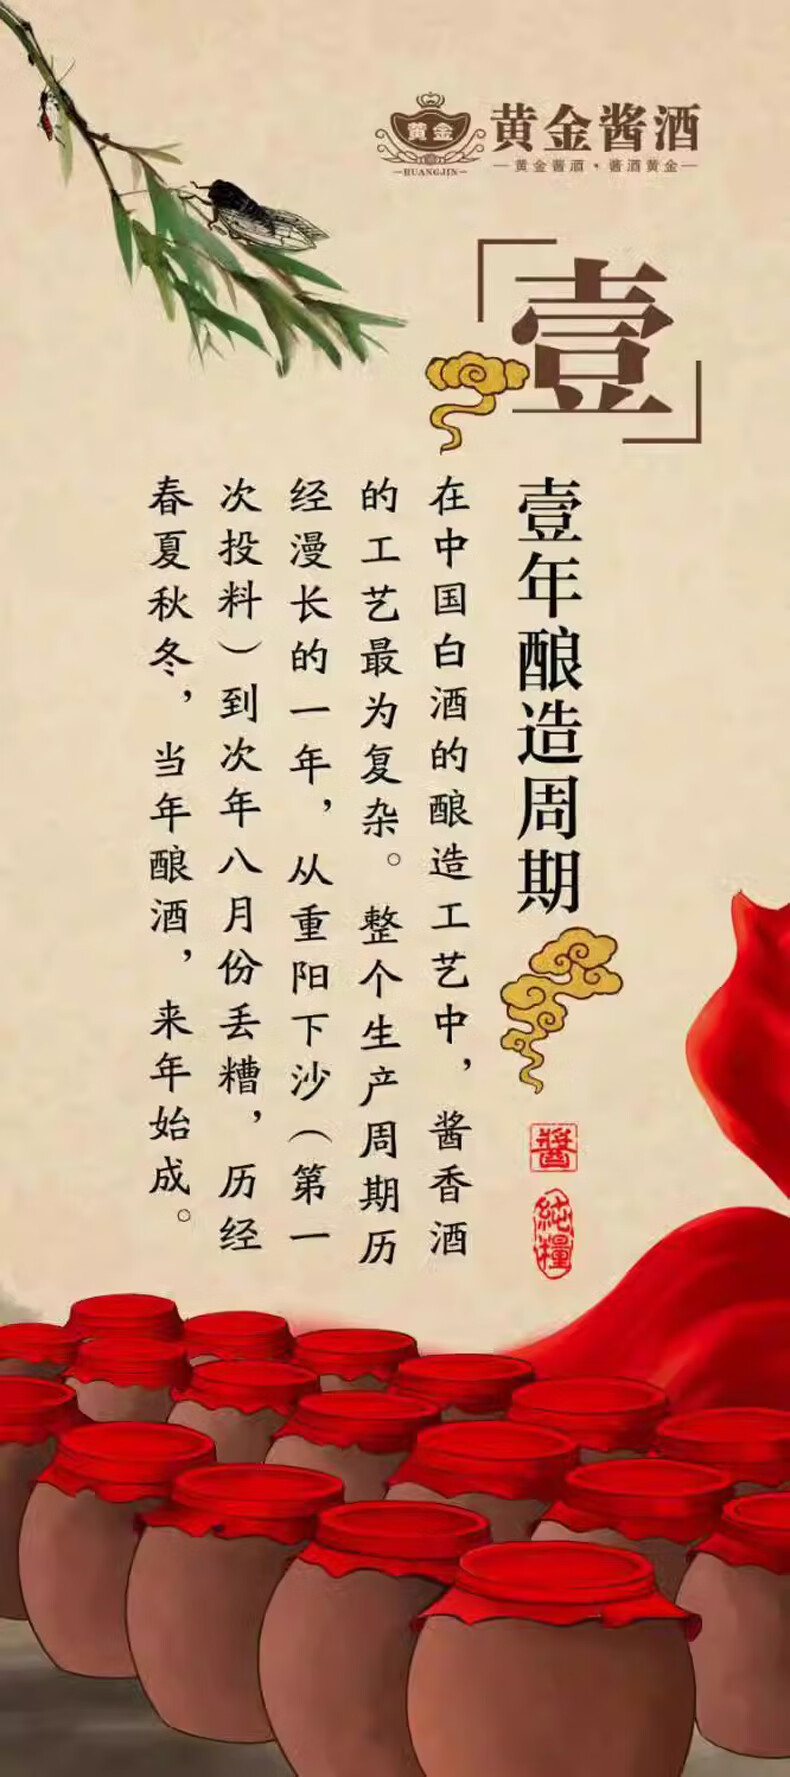 黄金
HUANGJIN
黄金酱酒
黄金酱酒·酱酒黄金
壹
壹年酿造周期
在中国白酒的酿造工艺中，酱香酒
的工艺最为复杂。整个生产周期历
经漫长的一年，从重阳下沙（第一
次投料）到次年八月份丢糟，历经
春夏秋冬，当年酿酒，来年始成。
醬
純糧